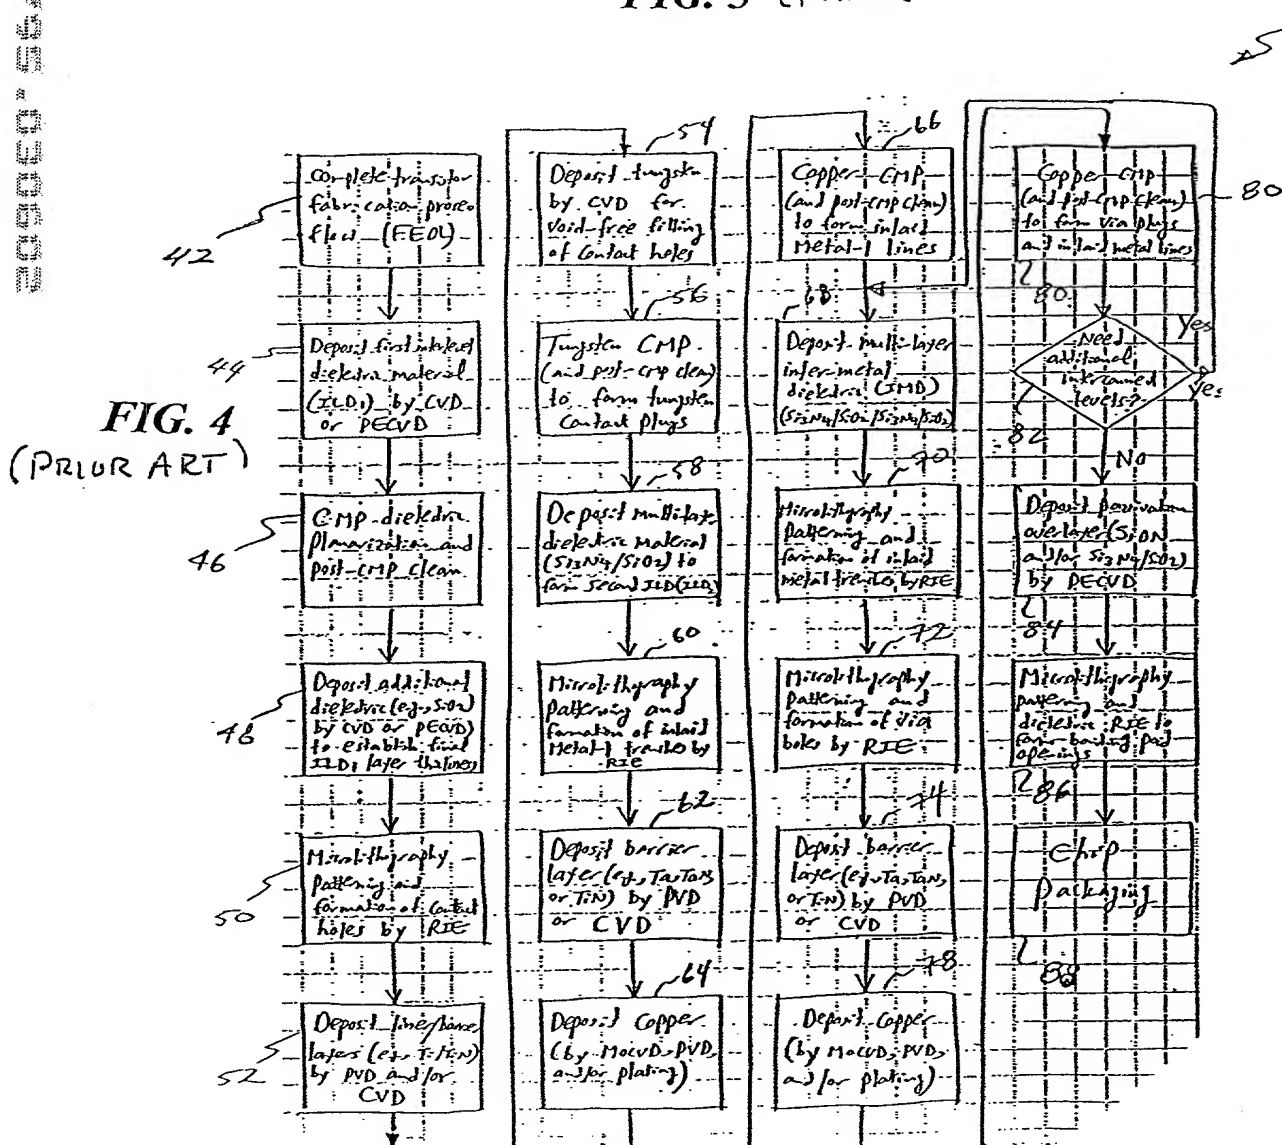 FIG. 3
FIG. 4
(PRIOR ART)
complete transistor
fabrication process
flow (FEOL)
42
Deposit first interlevel
dielectric material
(ILD1) by CVD
or PECVD
44
CMP dielectric
planarization and
post-CMP clean
46
Deposit additional
dielectric (e.g., SiO2)
by CVD or PECVD)
to establish final
ILD1 layer thickness
48
Microlithography
patterning and
formation of contact
holes by RIE
50
Deposit liner/barrier
layers (e.g., Ti/TiN)
by PVD and/or
CVD
52
54
Deposit tungsten
by CVD for
void-free filling
of contact holes
56
Tungsten CMP
(and post-CMP clean)
to form tungsten
Contact plugs
58
Deposit multilayer
dielectric material
(Si3N4/SiO2) to
form second ILD (ILD2)
60
Microlithography
patterning and
formation of inlaid
Metal-1 trenches by
RIE
62
Deposit barrier
layer (e.g., Ta, TaN,
or TiN) by PVD
or CVD
64
Deposit Copper
(by MOCVD, PVD,
and/or plating)
66
Copper CMP
(and post-CMP clean)
to form inlaid
Metal-1 lines
68
Deposit multilayer
inter-metal
dielectric (IMD)
(Si3N4/SiO2/Si3N4/SiO2)
70
Microlithography
patterning and
formation of inlaid
metal trenches by RIE
72
Microlithography
patterning and
formation of via
holes by RIE
74
Deposit barrier
layer (e.g., Ta, TaN,
or TiN) by PVD
or CVD
78
Deposit Copper
(by MOCVD, PVD,
and/or plating)
Copper CMP
(and post-CMP clean)
to form via plugs
and inlaid metal lines
80
80
Need
additional
interconnect
levels?
Yes
Yes
82
No
Deposit passivation
overlayer (SiON
and/or Si3N4/SiO2)
by PECVD
84
Microlithography
patterning and
dielectric RIE to
form bonding pad
openings
86
Chip
Packaging
88